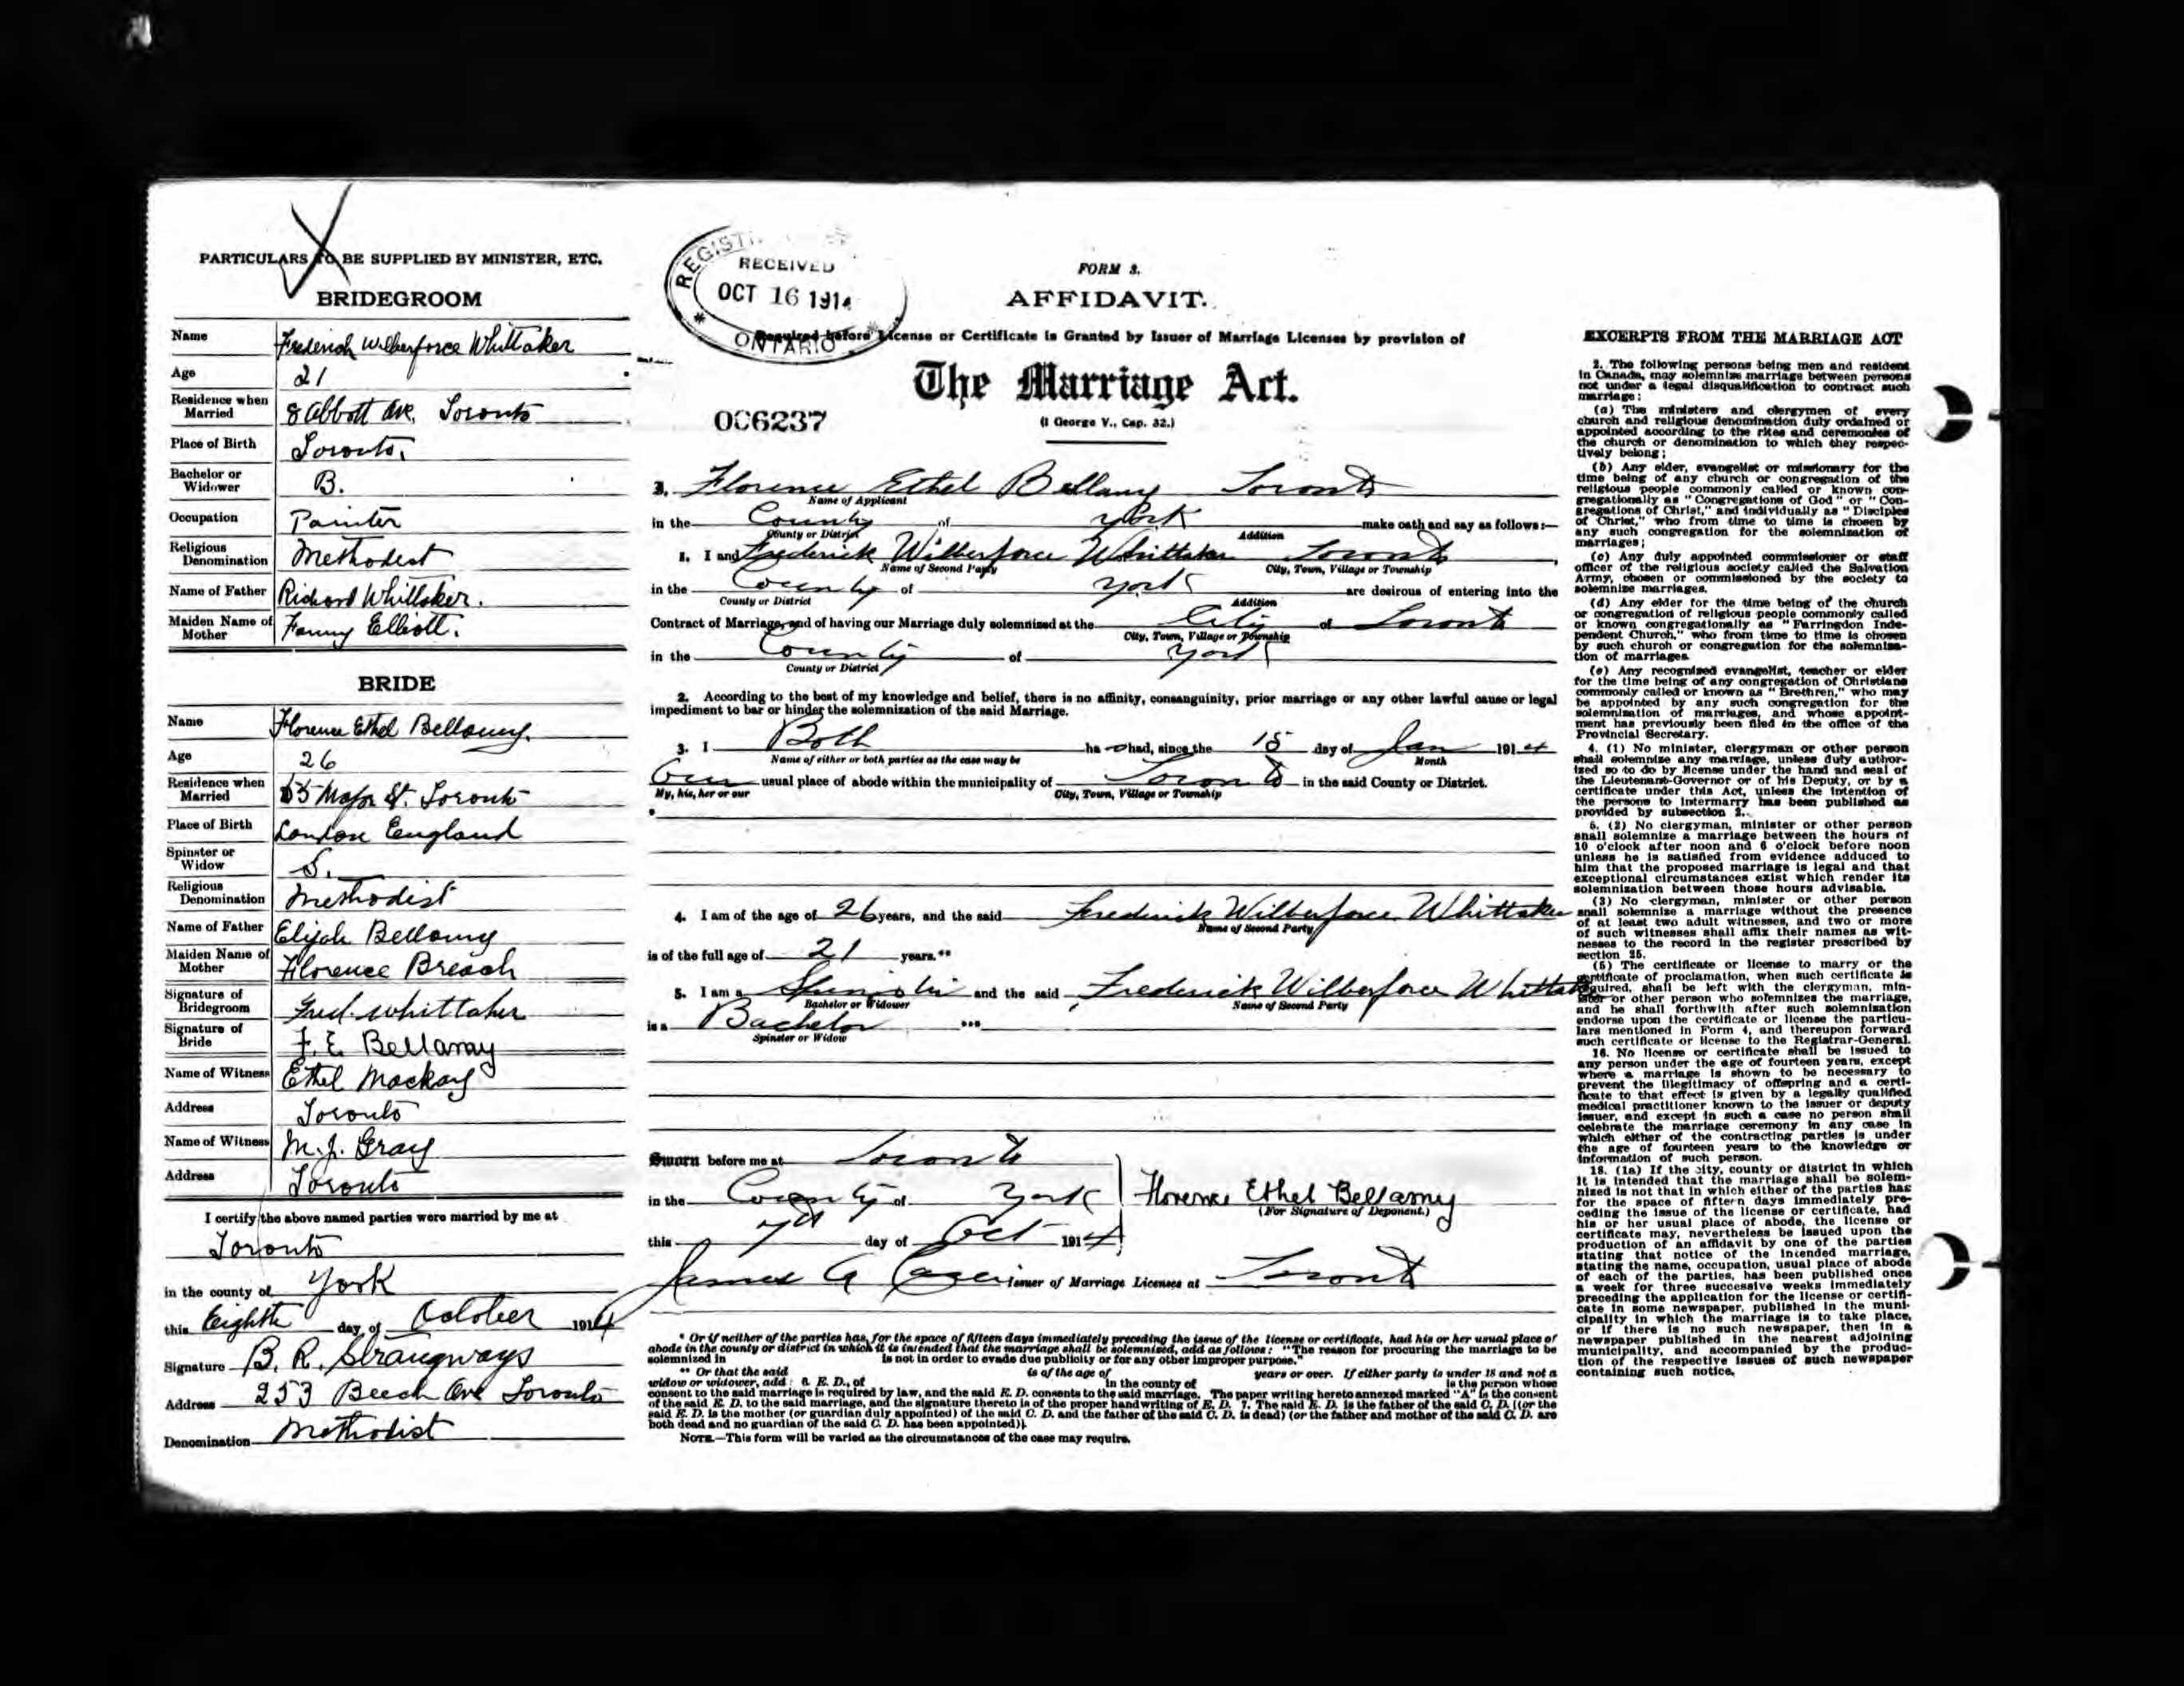 PARTICULARS TO BE SUPPLIED BY MINISTER, ETC.
BRIDEGROOM
Name Frederick Wilberforce Whittaker
Age 21
Residence when Married 8 Abbott Ave. Toronto
Place of Birth Toronto.
Bachelor or Widower B.
Occupation Painter
Religious Denomination Methodist
Name of Father Richard Whittaker.
Maiden Name of Mother Fanny Elliott.
BRIDE
Name Florence Ethel Bellamy.
Age 26
Residence when Married Major St. Toronto
Place of Birth London England
Spinster or Widow S.
Religious Denomination Methodist
Name of Father Elijah Bellamy
Maiden Name of Mother Florence Breach
Signature of Bridegroom Fred. Whittaker
Signature of Bride F. E. Bellamy
Name of Witness Ethel Mackay
Address Toronto
Name of Witness M. J. Gray
Address Toronto
I certify the above named parties were married by me at
Toronto
in the county of York
this Eighth day of October 1914
Signature B. R. Strangways
Address 253 Beech Ave Toronto
Denomination Methodist
RECEIVED
OCT 16 1914
ONTARIO
FORM 3.
AFFIDAVIT.
Required before License or Certificate is Granted by Issuer of Marriage Licenses by provision of
The Marriage Act.
006237
(1 George V., Cap. 32.)
I, Florence Ethel Bellamy Toronto
Name of Applicant
in the County of York make oath and say as follows:—
County or District Addition
1. I and Frederick Wilberforce Whittaker Toronto,
Name of Second Party City, Town, Village or Township
in the County of York are desirous of entering into the
County or District Addition
Contract of Marriage, and of having our Marriage duly solemnized at the City of Toronto
City, Town, Village or Township
in the County of York
County or District
2. According to the best of my knowledge and belief, there is no affinity, consanguinity, prior marriage or any other lawful cause or legal
impediment to bar or hinder the solemnization of the said Marriage.
3. I Both ha had, since the 15 day of Jan 1914
Name of either or both parties as the case may be Month
Our usual place of abode within the municipality of Toronto in the said County or District.
My, his, her or our City, Town, Village or Township
4. I am of the age of 26 years, and the said Frederick Wilberforce Whittaker
Name of Second Party
is of the full age of 21 years.**
5. I am a Spinster and the said Frederick Wilberforce Whittaker
Bachelor or Widower Name of Second Party
is a Bachelor ***
Spinster or Widow
Sworn before me at Toronto
in the County of York Florence Ethel Bellamy
(For Signature of Deponent.)
this 7th day of Oct 1914
James A Issuer of Marriage Licenses at Toronto
* Or if neither of the parties has, for the space of fifteen days immediately preceding the issue of the license or certificate, had his or her usual place of
abode in the county or district in which it is intended that the marriage shall be solemnized, add as follows: "The reason for procuring the marriage to be
solemnized in is not in order to evade due publicity or for any other improper purpose."
** Or that the said is of the age of years or over. If either party is under 18 and not a
widow or widower, add: 6. E. D., of in the county of is the person whose
consent to the said marriage is required by law, and the said E. D. consents to the said marriage. The paper writing hereto annexed marked "A" is the consent
of the said E. D. to the said marriage, and the signature thereto is of the proper handwriting of E. D. 7. The said E. D. is the father of the said C. D. [(or the
said E. D. is the mother (or guardian duly appointed) of the said C. D. and the father of the said C. D. is dead) (or the father and mother of the said C. D. are
both dead and no guardian of the said C. D. has been appointed)].
NOTE.—This form will be varied as the circumstances of the case may require.
EXCERPTS FROM THE MARRIAGE ACT
2. The following persons being men and resident
in Canada, may solemnize marriage between persons
not under a legal disqualification to contract such
marriage:
(a) The ministers and clergymen of every
church and religious denomination duly ordained or
appointed according to the rites and ceremonies of
the church or denomination to which they respec-
tively belong;
(b) Any elder, evangelist or missionary for the
time being of any church or congregation of the
religious people commonly called or known con-
gregationally as "Congregations of God" or "Con-
gregations of Christ," and individually as "Disciples
of Christ," who from time to time is chosen by
any such congregation for the solemnization of
marriages;
(c) Any duly appointed commissioner or staff
officer of the religious society called the Salvation
Army, chosen or commissioned by the society to
solemnize marriages.
(d) Any elder for the time being of the church
or congregation of religious people commonly called
or known congregationally as "Farringdon Inde-
pendent Church," who from time to time is chosen
by such church or congregation for the solemniza-
tion of marriages.
(e) Any recognised evangelist, teacher or elder
for the time being of any congregation of Christians
commonly called or known as "Brethren," who may
be appointed by any such congregation for the
solemnization of marriages, and whose appoint-
ment has previously been filed in the office of the
Provincial Secretary.
4. (1) No minister, clergyman or other person
shall solemnize any marriage, unless duly author-
ized so to do by license under the hand and seal of
the Lieutenant-Governor or of his Deputy, or by a
certificate under this Act, unless the intention of
the persons to intermarry has been published as
provided by subsection 2.
6. (2) No clergyman, minister or other person
shall solemnize a marriage between the hours of
10 o'clock after noon and 6 o'clock before noon
unless he is satisfied from evidence adduced to
him that the proposed marriage is legal and that
exceptional circumstances exist which render its
solemnization between those hours advisable.
(3) No clergyman, minister or other person
shall solemnize a marriage without the presence
of at least two adult witnesses, and two or more
of such witnesses shall affix their names as wit-
nesses to the record in the register prescribed by
section 25.
(5) The certificate or license to marry or the
certificate of proclamation, when such certificate is
required, shall be left with the clergyman, min-
ister or other person who solemnizes the marriage,
and he shall forthwith after such solemnization
endorse upon the certificate or license the particu-
lars mentioned in Form 4, and thereupon forward
such certificate or license to the Registrar-General.
16. No license or certificate shall be issued to
any person under the age of fourteen years, except
where a marriage is shown to be necessary to
prevent the illegitimacy of offspring and a certi-
ficate to that effect is given by a legally qualified
medical practitioner known to the issuer or deputy
issuer, and except in such a case no person shall
celebrate the marriage ceremony in any case in
which either of the contracting parties is under
the age of fourteen years to the knowledge or
information of such person.
18. (1a) If the city, county or district in which
it is intended that the marriage shall be solem-
nized is not that in which either of the parties has
for the space of fifteen days immediately pre-
ceding the issue of the license or certificate, had
his or her usual place of abode, the license or
certificate may, nevertheless be issued upon the
production of an affidavit by one of the parties
stating that notice of the intended marriage,
stating the name, occupation, usual place of abode
of each of the parties, has been published once
a week for three successive weeks immediately
preceding the application for the license or certifi-
cate in some newspaper, published in the muni-
cipality in which the marriage is to take place,
or if there is no such newspaper, then in a
newspaper published in the nearest adjoining
municipality, and accompanied by the produc-
tion of the respective issues of such newspaper
containing such notice.